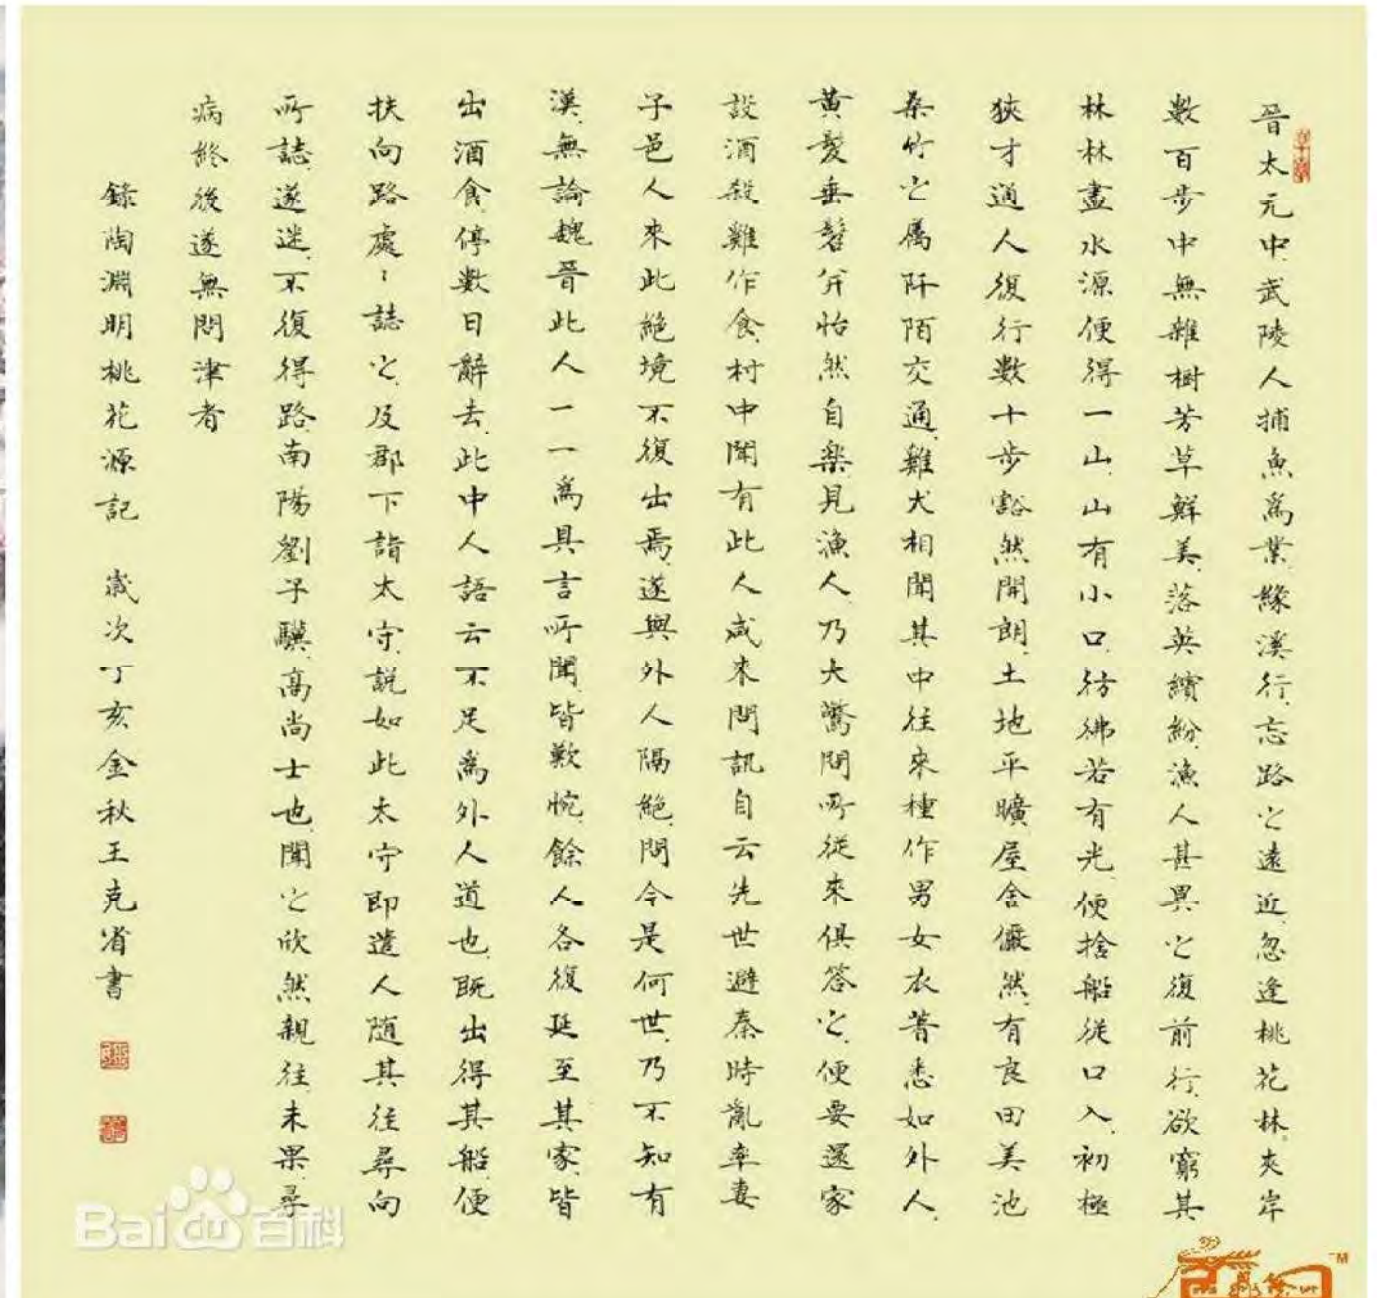 晉太元中武陵人捕魚為業緣溪行忘路之遠近忽逢桃花林夾岸
數百步中無雜樹芳草鮮美落英繽紛漁人甚異之復前行欲窮其
林林盡水源便得一山山有小口彷彿若有光便捨船從口入初極
狹才通人復行數十步豁然開朗土地平曠屋舍儼然有良田美池
桑竹之屬阡陌交通雞犬相聞其中往來種作男女衣著悉如外人
黃髮垂髫并怡然自樂見漁人乃大驚問所從來俱答之便要還家
設酒殺雞作食村中聞有此人咸來問訊自云先世避秦時亂率妻
子邑人來此絕境不復出焉遂與外人隔絕問今是何世乃不知有
漢無論魏晉此人一一為具言所聞皆歎惋餘人各復延至其家皆
出酒食停數日辭去此中人語云不足為外人道也既出得其船便
扶向路處〻誌之及郡下詣太守說如此太守即遣人隨其往尋向
所誌遂迷不復得路南陽劉子驥高尚士也聞之欣然親往未果尋
病終後遂無問津者
錄陶淵明桃花源記 歲次丁亥金秋王克省書
Baidu百科
TM